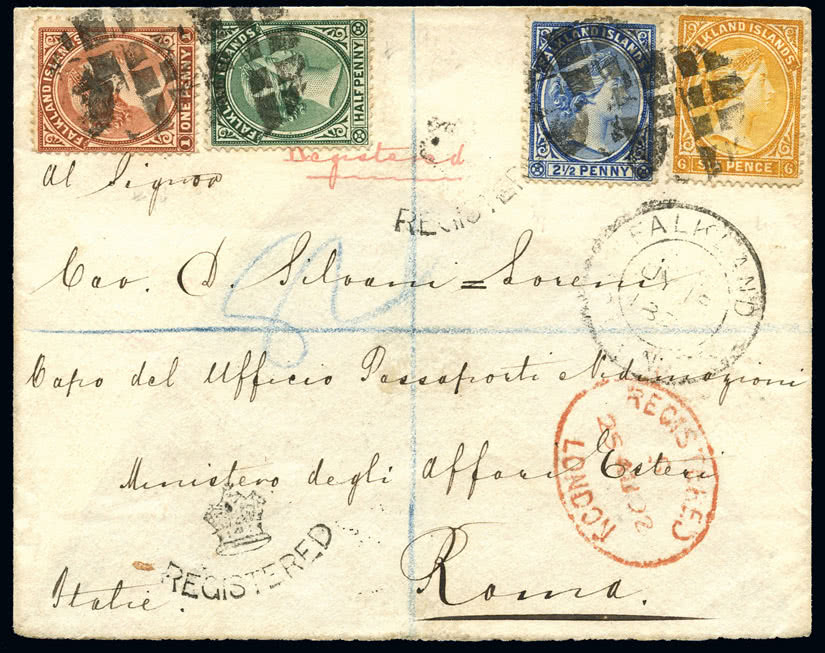 FALKLAND ISLANDS
1 ONE PENNY 1
FALKLAND ISLANDS
HALF PENNY
FALKLAND ISLANDS
2½ PENNY
FALKLAND ISLANDS
6 SIX PENCE 6
Registered
REGISTERED
Al Signor
FALKLAND
Cav. D. Silvani = Loreni
Capo del Ufficio Passaporti e Vidimazioni
REGISTERED
LONDON
25
92
Ministero degli Affari Esteri
REGISTERED
Italie. Roma.